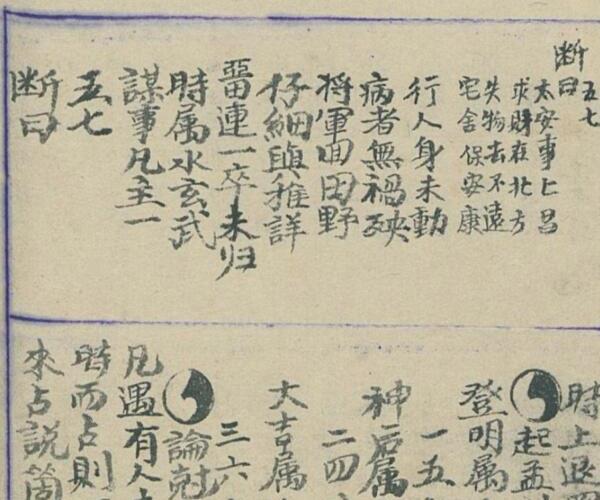 五七
断曰
太安事上昌
求財在北方
失物去不遠
宅舍保安康
行人身未動
病者無禍殃
将軍回田野
仔細與推詳
畱連一卒未归
時属水玄武
謀事凡主一
五七
断曰
時上退
起孟
登明属
一五
神后属
二四
大吉属
三六
論尅
凡遇有人
時而占則
來占説箇